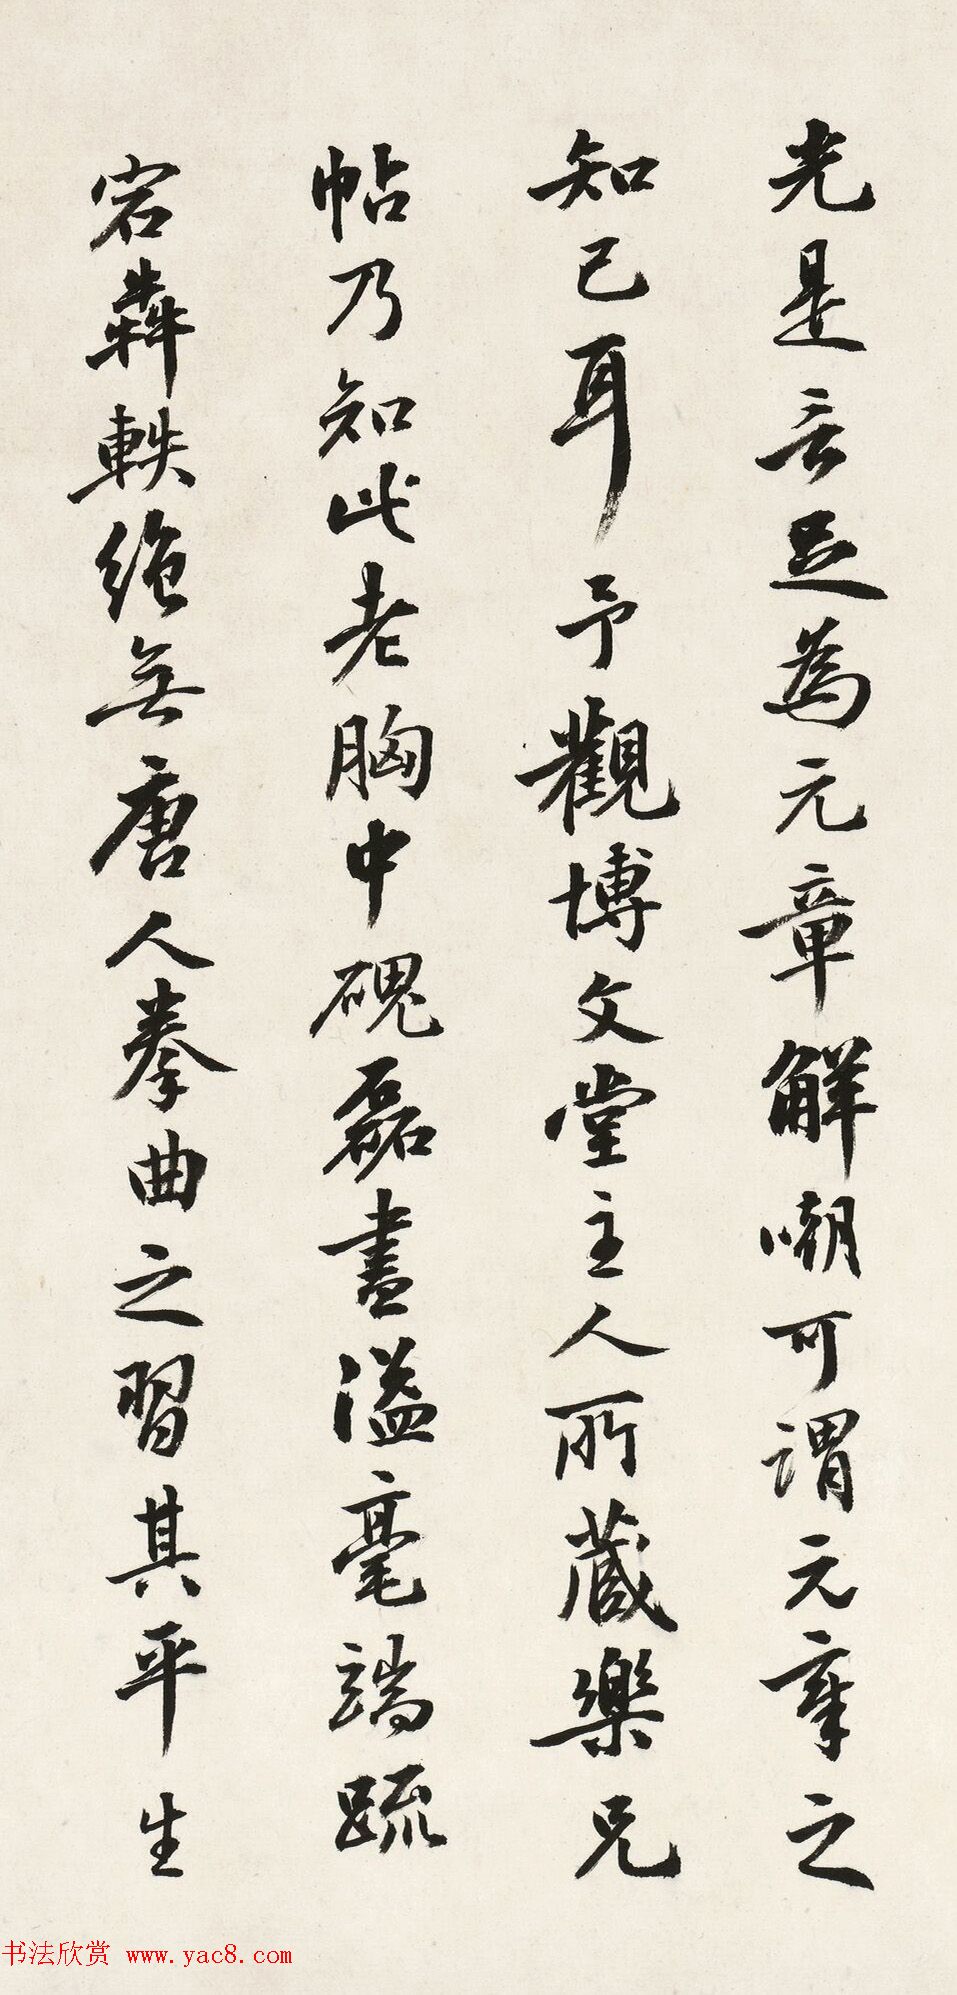 光是言足為元章解嘲可謂元章之
知己耳予觀博文堂主人所藏樂兄
帖乃知此老胸中磈磊盡溢毫端疏
宕犇軼絶無唐人拳曲之習其平生
书法欣赏 www.yac8.com